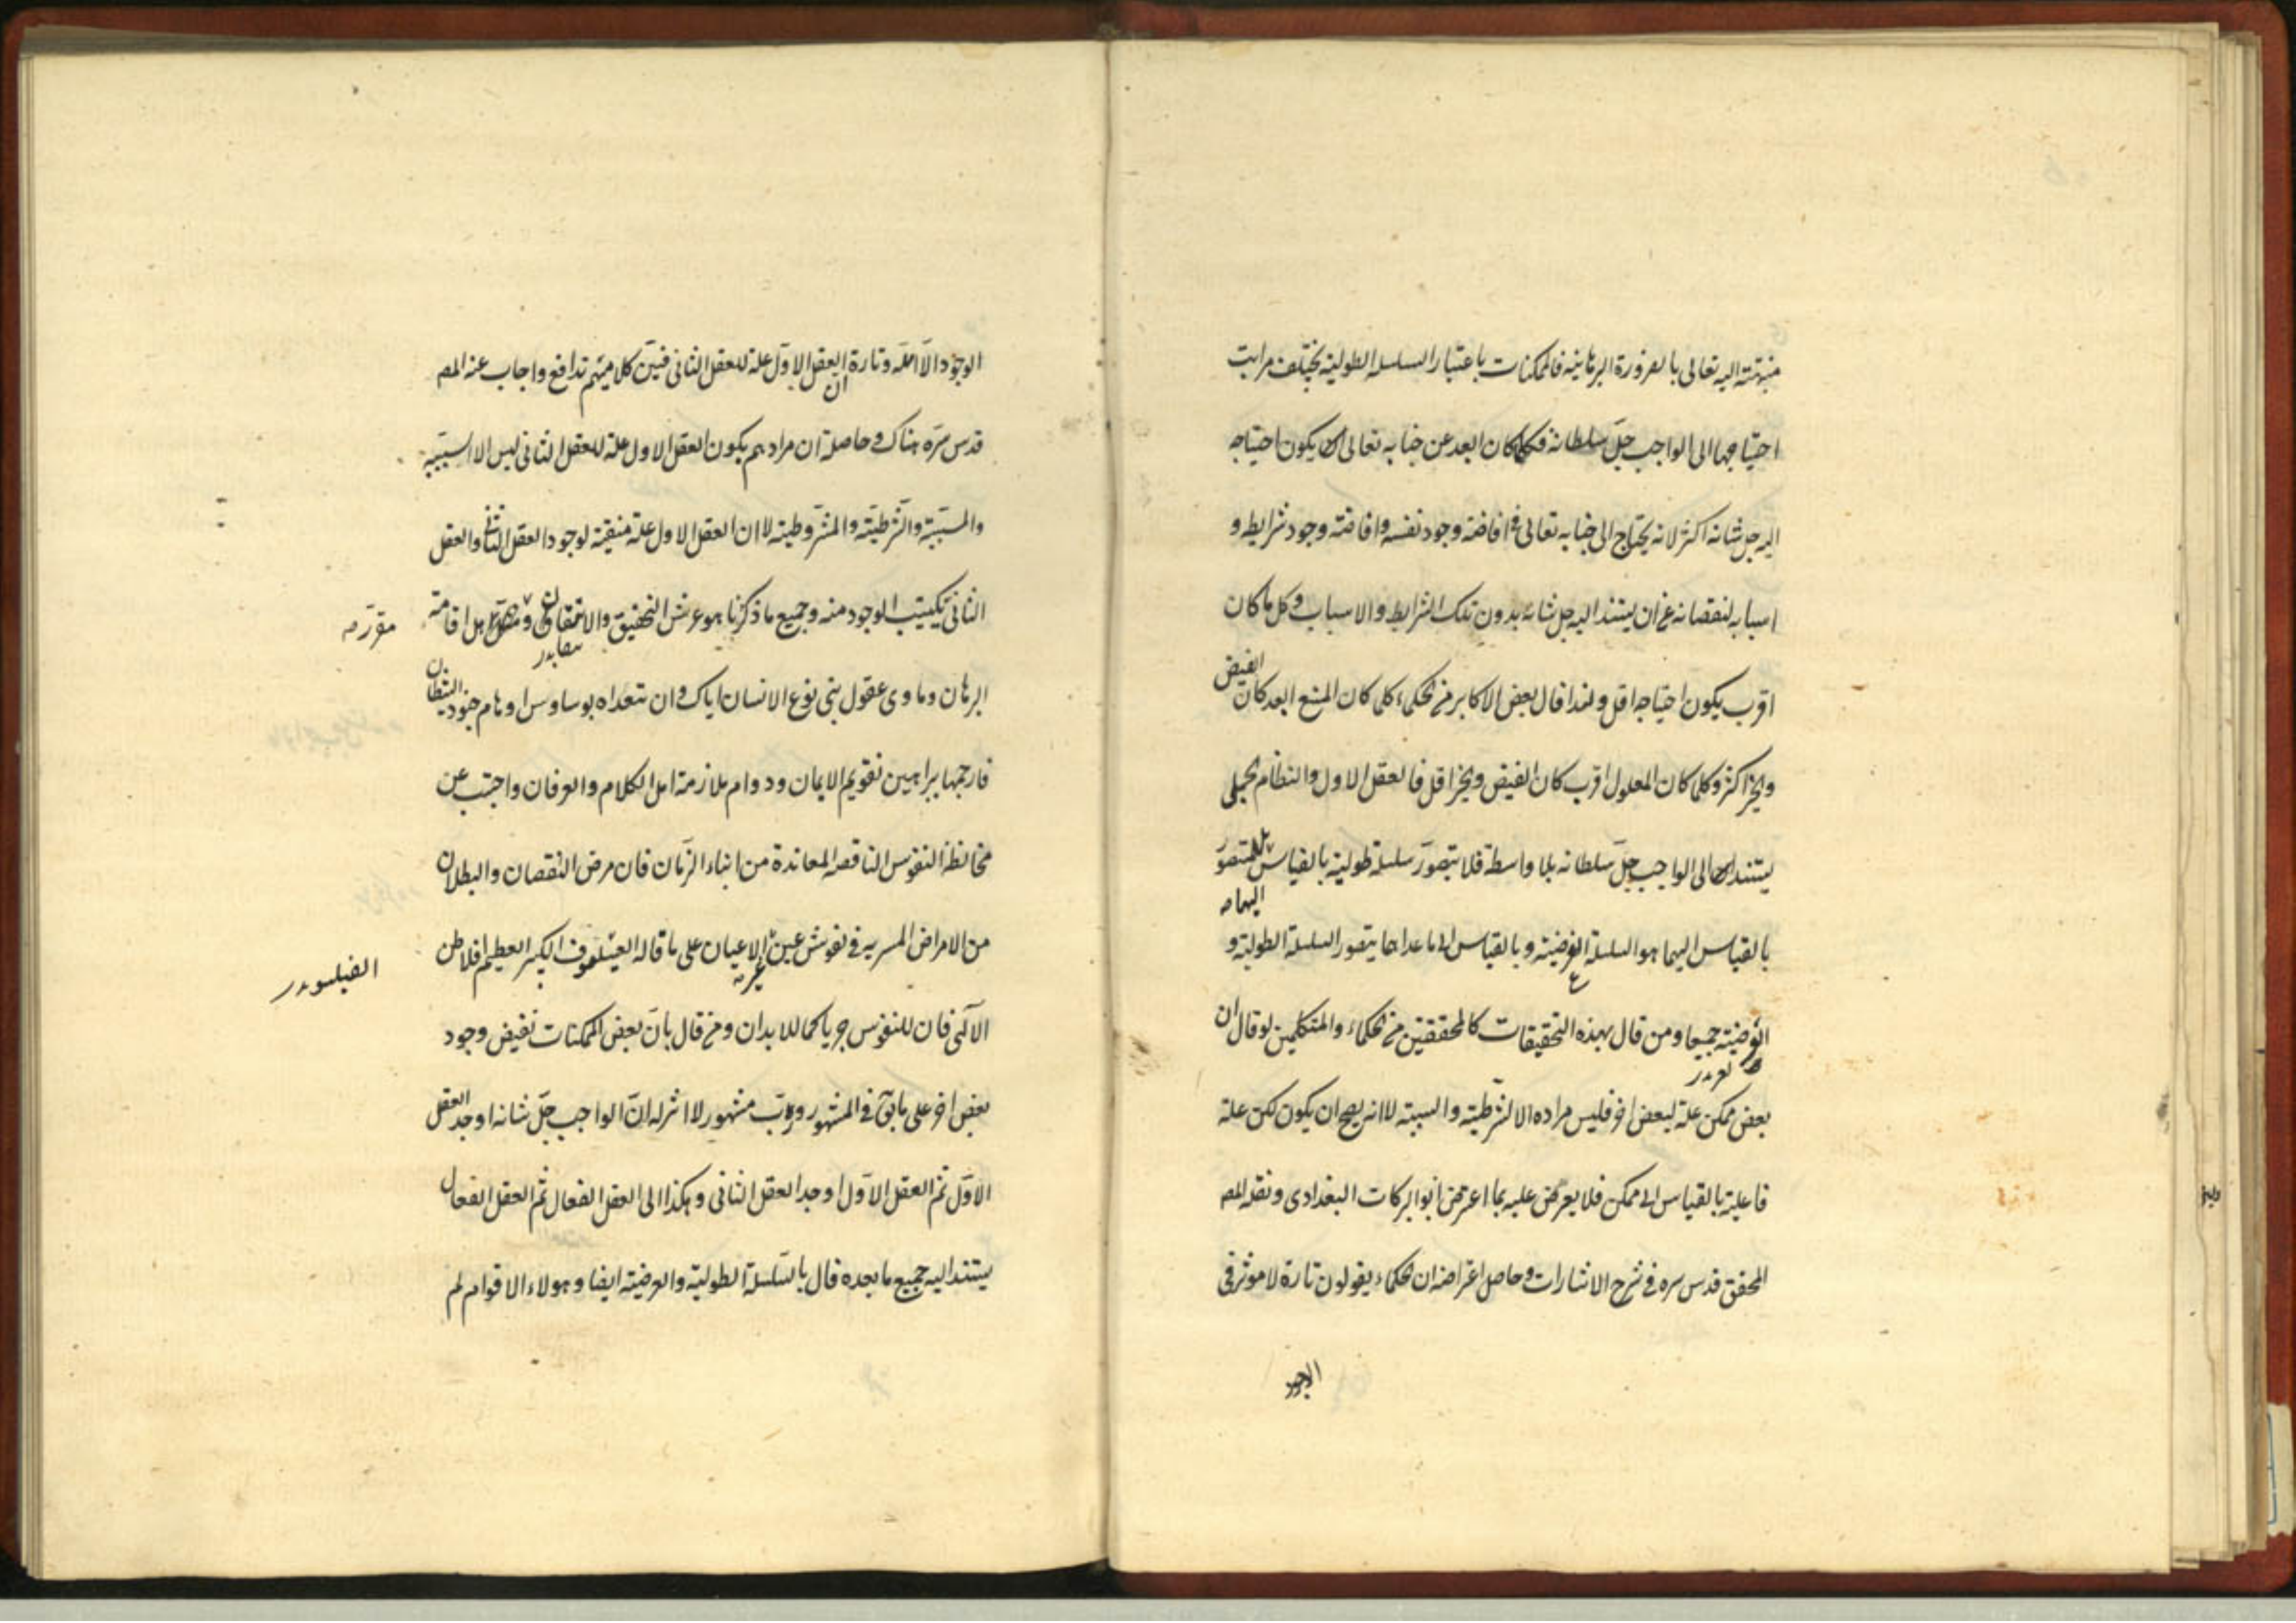 منتهية اليه تعالى بالضرورة البرهانية فالممكنات باعتبار السلسلة الطولية يختلف مراتب
احتياجها الى الواجب جلّ سلطانه فكلما كان ابعد عن جنابه تعالى يكون احتياجه
اليه جل شانه اكثر لانه يحتاج الى جنابه تعالى في افاضة وجود نفسه وافاضة وجود شرايطه و
اسبابه لنقصانه عن ان يستند اليه جل شانه بدون تلك الشرايط والاسباب وكل ما كان
اقرب يكون احتياجه اقل ولهذا قال بعض الاكابر من الحكماء كلما كان المنبع ابعد كان الفيض
والخير اكثر وكلما كان المعلول اقرب كان الفيض والخير اقل فالعقل الاول والنظام الجملي
يستند الى الواجب جلّ سلطانه بلا واسطة فلا يتصوّر سلسلة طولية بالقياس اليهما بل المتصوّر
بالقياس اليهما هو السلسلة العرضية وبالقياس الى ما عداهما يتصور السلسلة الطولية و
العرضية جميعا ومن قال بهذه التحقيقات كالمحققين من الحكماء والمتكلمين لو قال ان
بعض ممكن علة لبعض اخر فليس مراده الا الشرطية والسببية لا انه يصح ان يكون ممكن علة
فاعلية بالقياس الى ممكن فلا يعرض عليه بما اعترض ابو البركات البغدادى ونقله المص
المحقق قدس سره في شرح الاشارات وحاصل اعتراضه ان الحكماء يقولون تارة لا موثر في
الوجود
الوجود الّا اللّه وتارة ان العقل الاوّل علة للعقل الثانى فبين كلاميهم تدافع واجاب عنه المص
قدس سرّه هناك وحاصله ان مرادهم بكون العقل الاول علة للعقل الثانى ليس الا السببية
والمسببية والشرطية والمشروطية لا ان العقل الاول علة مفيضة لوجود العقل الثانى والعقل
الثانى يكتسب الوجود منه وجميع ما ذكرنا هو عرش التحقيق والاتقان و اهل اقامة
مقرّ
البرهان وماوى عقول بنى نوع الانسان اياك وان تتعداه بوساوس اوهام جنود الشيطان
فارجمها ببراهين تقويم الايمان ودوام ملازمة اهل الكلام والعرفان واجتنب عن
مخالطة النفوس الناقصه المعاندة من ابناء الزمان فان مرض النقصان والبطلان
من الامراض المسريه في نفوس غير الاعيان على ما قاله الفيلسوف الكبير العظيم افلاطن
الفيلسوف
الالهى فان للنفوس جربا كما للابدان ومن قال بان بعض الممكنات تفيض وجود
بعض اخر على ما في المشهور وربّ مشهور لا اثر له ان الواجب جلّ شانه اوجد العقل
الاوّل ثم العقل الاوّل اوجد العقل الثانى وهكذا الى العقل الفعال ثم العقل الفعال
يستند اليه جميع ما بعده قال بالسلسلة الطولية والعرضية ايضا وهولاء الاقوام لم